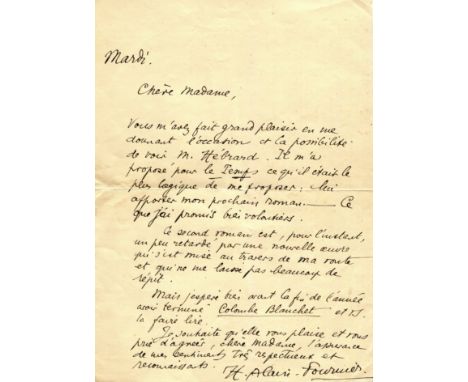 Mardi.
Chère Madame,
Vous m'avez fait grand plaisir en me
donnant l'occasion et la possibilité
de voir M. Hébrard. Il m'a
proposé pour le Temps ce qu'il était le
plus logique de me proposer : lui
apporter mon prochain roman. — Ce
que j'ai promis très volontiers.
Ce second roman est, pour l'instant,
un peu retardé par une nouvelle œuvre
qui s'est mise au travers de ma route
et qui ne me laisse pas beaucoup de
répit.
Mais j'espère bien avant la fin de l'année
avoir terminé Colombe Blanchet et
la faire lire.
Je souhaite qu'elle vous plaise et vous
prie d'agréer, chère Madame, l'assurance
de mes sentiments très respectueux et
reconnaissants.
H. Alain-Fournier